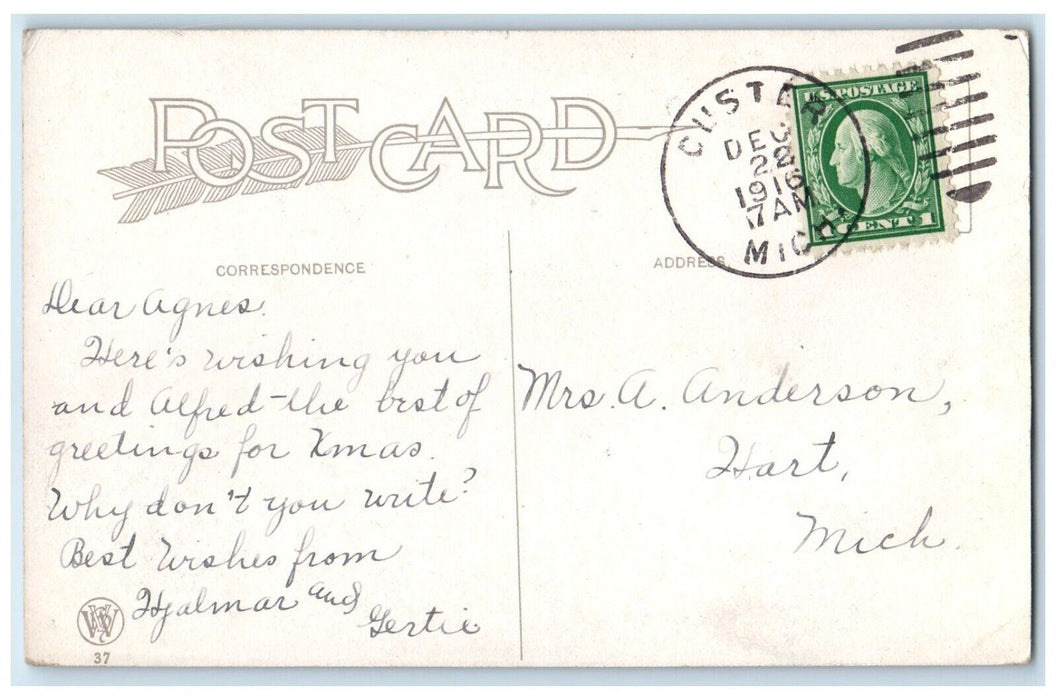 POST CARD
CUSTER
DEC
22
1916
7 AM
MICH.
U.S. POSTAGE
1 CENT 1
CORRESPONDENCE
ADDRESS
Dear Agnes.
Here's wishing you
and Alfred - the best of
greetings for Xmas.
Why don't you write?
Best Wishes from
Hjalmar and
Gertie
Mrs. A. Anderson,
Hart,
Mich.
37